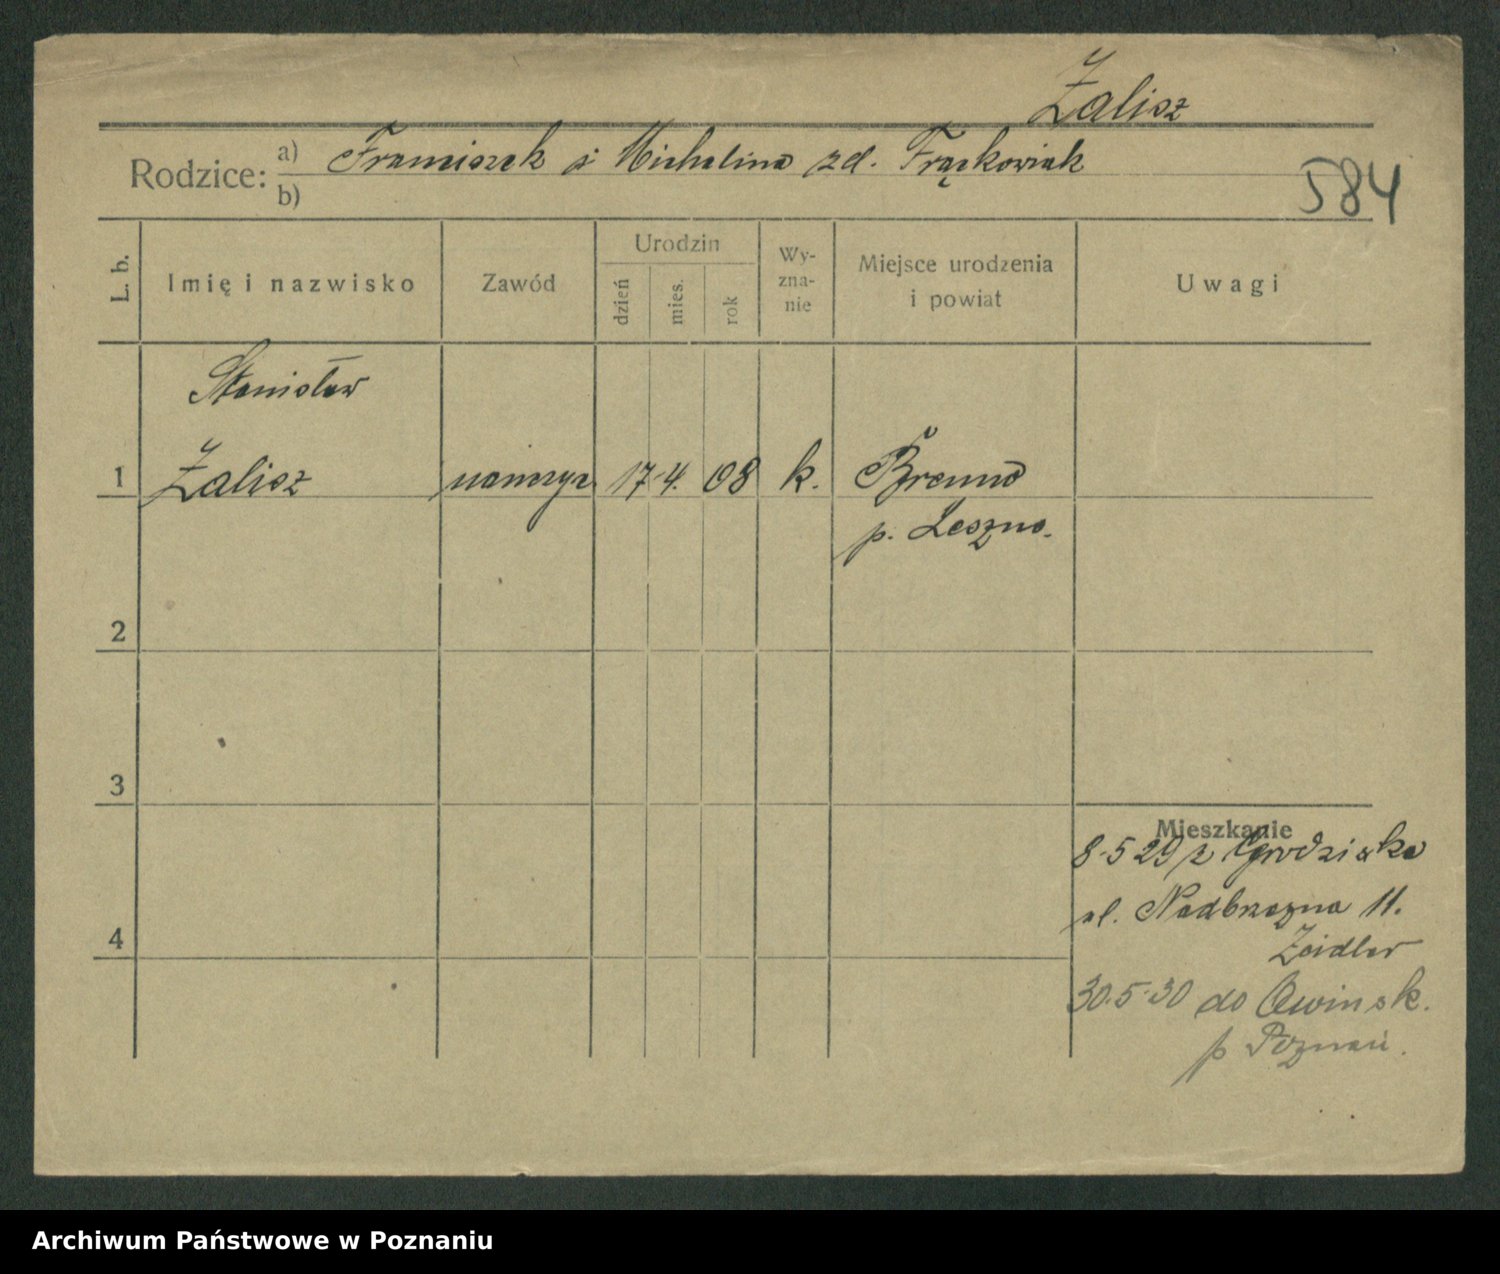 Żalisz
Rodzice: a) Franciszek i Michalina zd. Frąckowiak
b)
584
L. b.
Imię i nazwisko
Zawód
Urodzin
dzień
mies.
rok
Wy-
zna-
nie
Miejsce urodzenia
i powiat
Uwagi
Stanisław
1 Żalisz 17 4. 08 k. Brenno
p. Leszno.
2
3
Mieszkanie
8.5 29 z Grodziska
ul. Nadbrzeżna 11.
4
Zeidler
30.5.30 do Owinsk.
p Poznań.
Archiwum Państwowe w Poznaniu